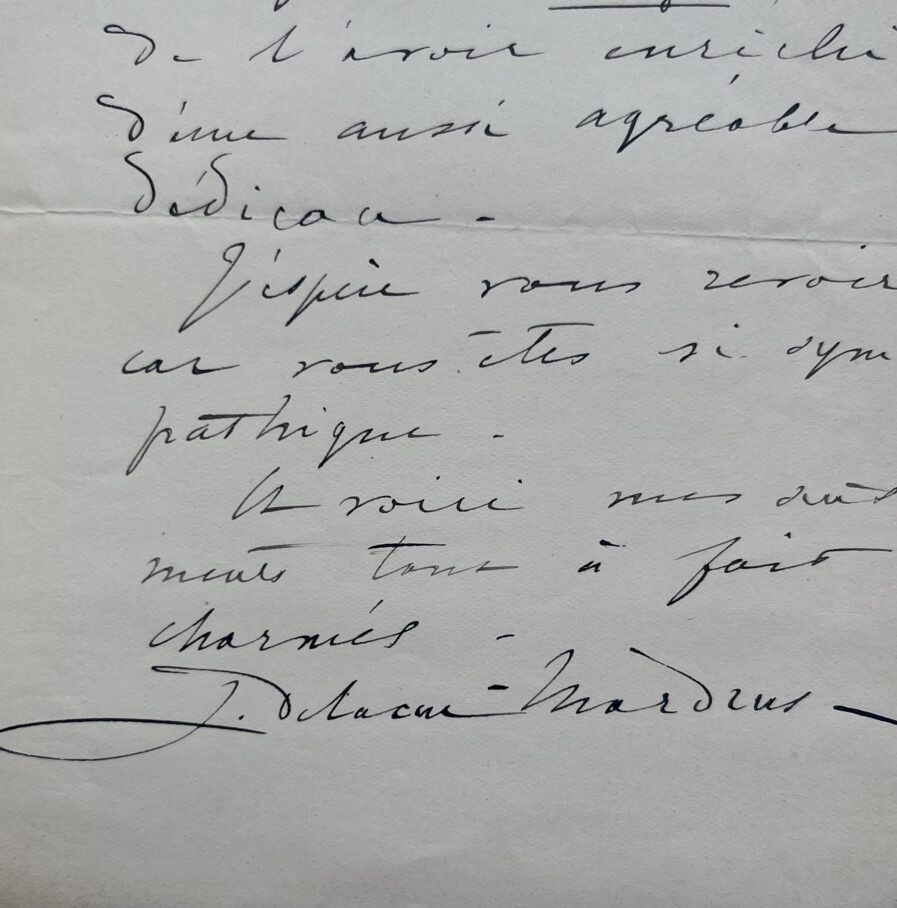 de l'avoir enrichi
d'une aussi agréable
dédicace -
J'espère vous revoir
car vous êtes si sym
pathique -
Et voici mes senti
ments tout à fait
charmés -
J. Delarue-Mardrus